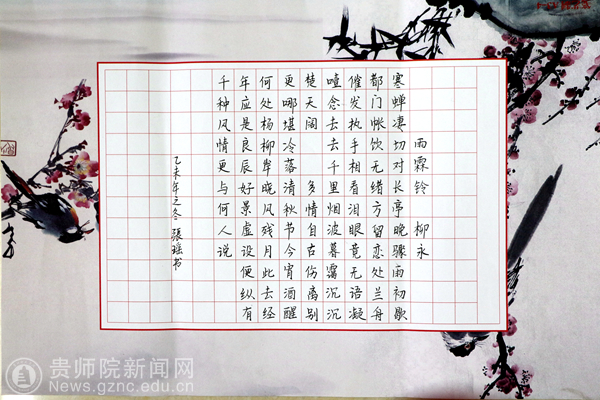 雨霖铃 柳永
寒蝉凄切对长亭晚骤雨初歇
都门帐饮无绪方留恋处兰舟
催发执手相看泪眼竟无语凝
噎念去去千里烟波暮霭沉沉
楚天阔 多情自古伤离别
更哪堪冷落清秋节今宵酒醒
何处杨柳岸晓风残月此去经
年应是良辰好景虚设便纵有
千种风情更与何人说
乙未年之冬 張瑶书
贵师院新闻网
News.gznc.edu.cn